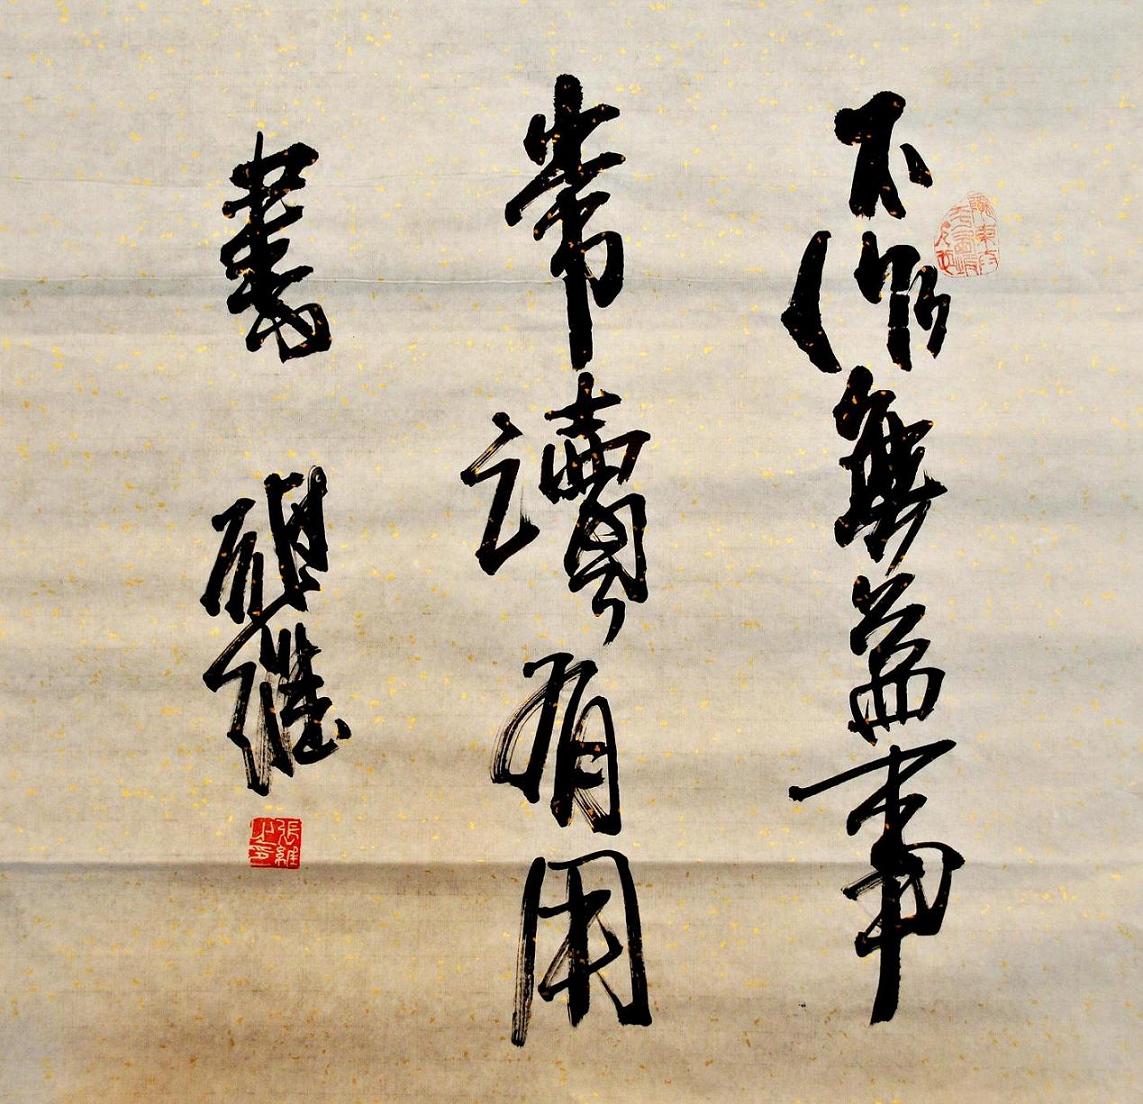 不作無益事
常讀有用
書
張維之印